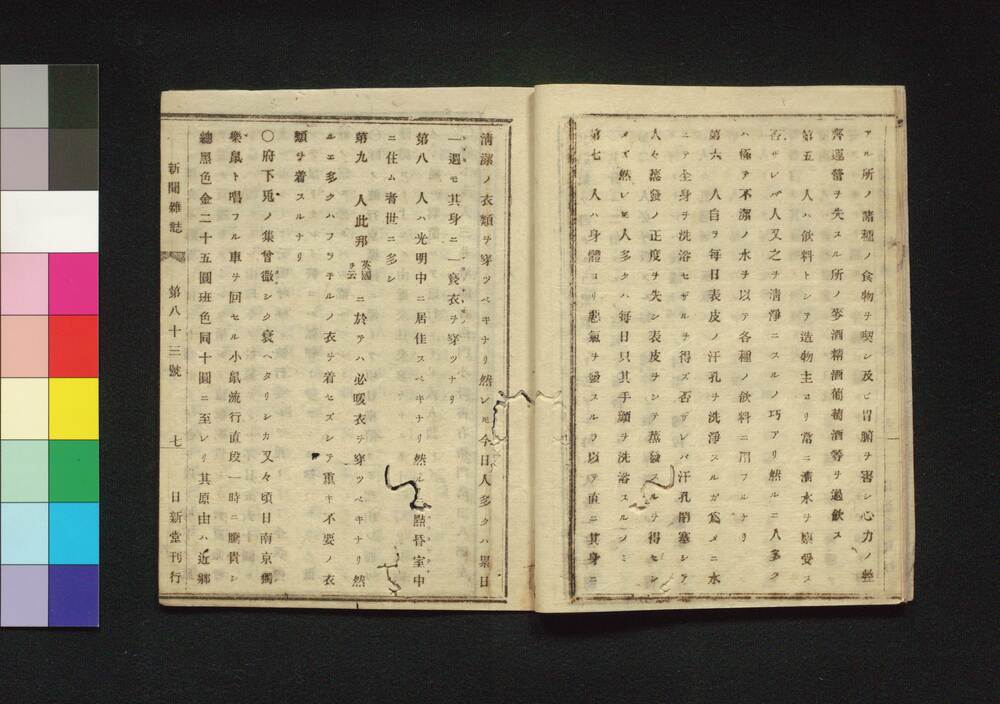 アル所ノ諸種ノ食物ヲ喫シ及ビ胃腑ヲ害シ心力ノ經
濟運營ヲ失スル所ノ麥酒精酒葡萄酒等ヲ過飲ス
第五　人ハ飲料トシテ造物主ヨリ常ニ清水ヲ享受ス
否サレバ人又之ヲ清淨ニスルノ巧アリ然ルニ人多ク
ハ極テ不潔ノ水ヲ以テ各種ノ飲料ニ用フルナリ
第六　人自ラ毎日表皮ノ汗孔ヲ洗淨スルガ爲メニ水
ニテ全身ヲ洗浴セザルヲ得ズ否ザレバ汗孔閉塞シテ
人々蒸發ノ正度ヲ失シ表皮ヲシテ蒸發スルヲ得セシ
メズ然レ𪜈人多クハ毎日只其手顔ヲ洗浴スルノミ
第七　人ハ身體ヨリ惡氣ヲ發スルヲ以テ直ニ其身ニ
清潔ノ衣類ヲ穿ツベキナリ然レ𪜈今日人多クハ累日
一週モ其身ニ一襲衣ヲ穿ツナリ
第八　人ハ光明中ニ居住スベキナリ然ルニ黯昏室中
ニ住ム者世ニ多シ
第九　人此邦英國ヲ云ニ於テハ必暖衣ヲ穿ツベキナリ然
ルニ多クハフラチルノ衣ヲ着セズシテ重キ不要ノ衣
類ヲ着スルナリ
〇府下兎ノ集曾微シク衰ヘタリシカ又々頃日南京鼠
樂鼠ト唱フル車ヲ回セル小鼠流行直段一時ニ騰貴シ
總黑色金二十五圓班色同十圓ニ至レリ其原由ハ近郷
新聞雜誌　第八十三號　七　日新堂刊行